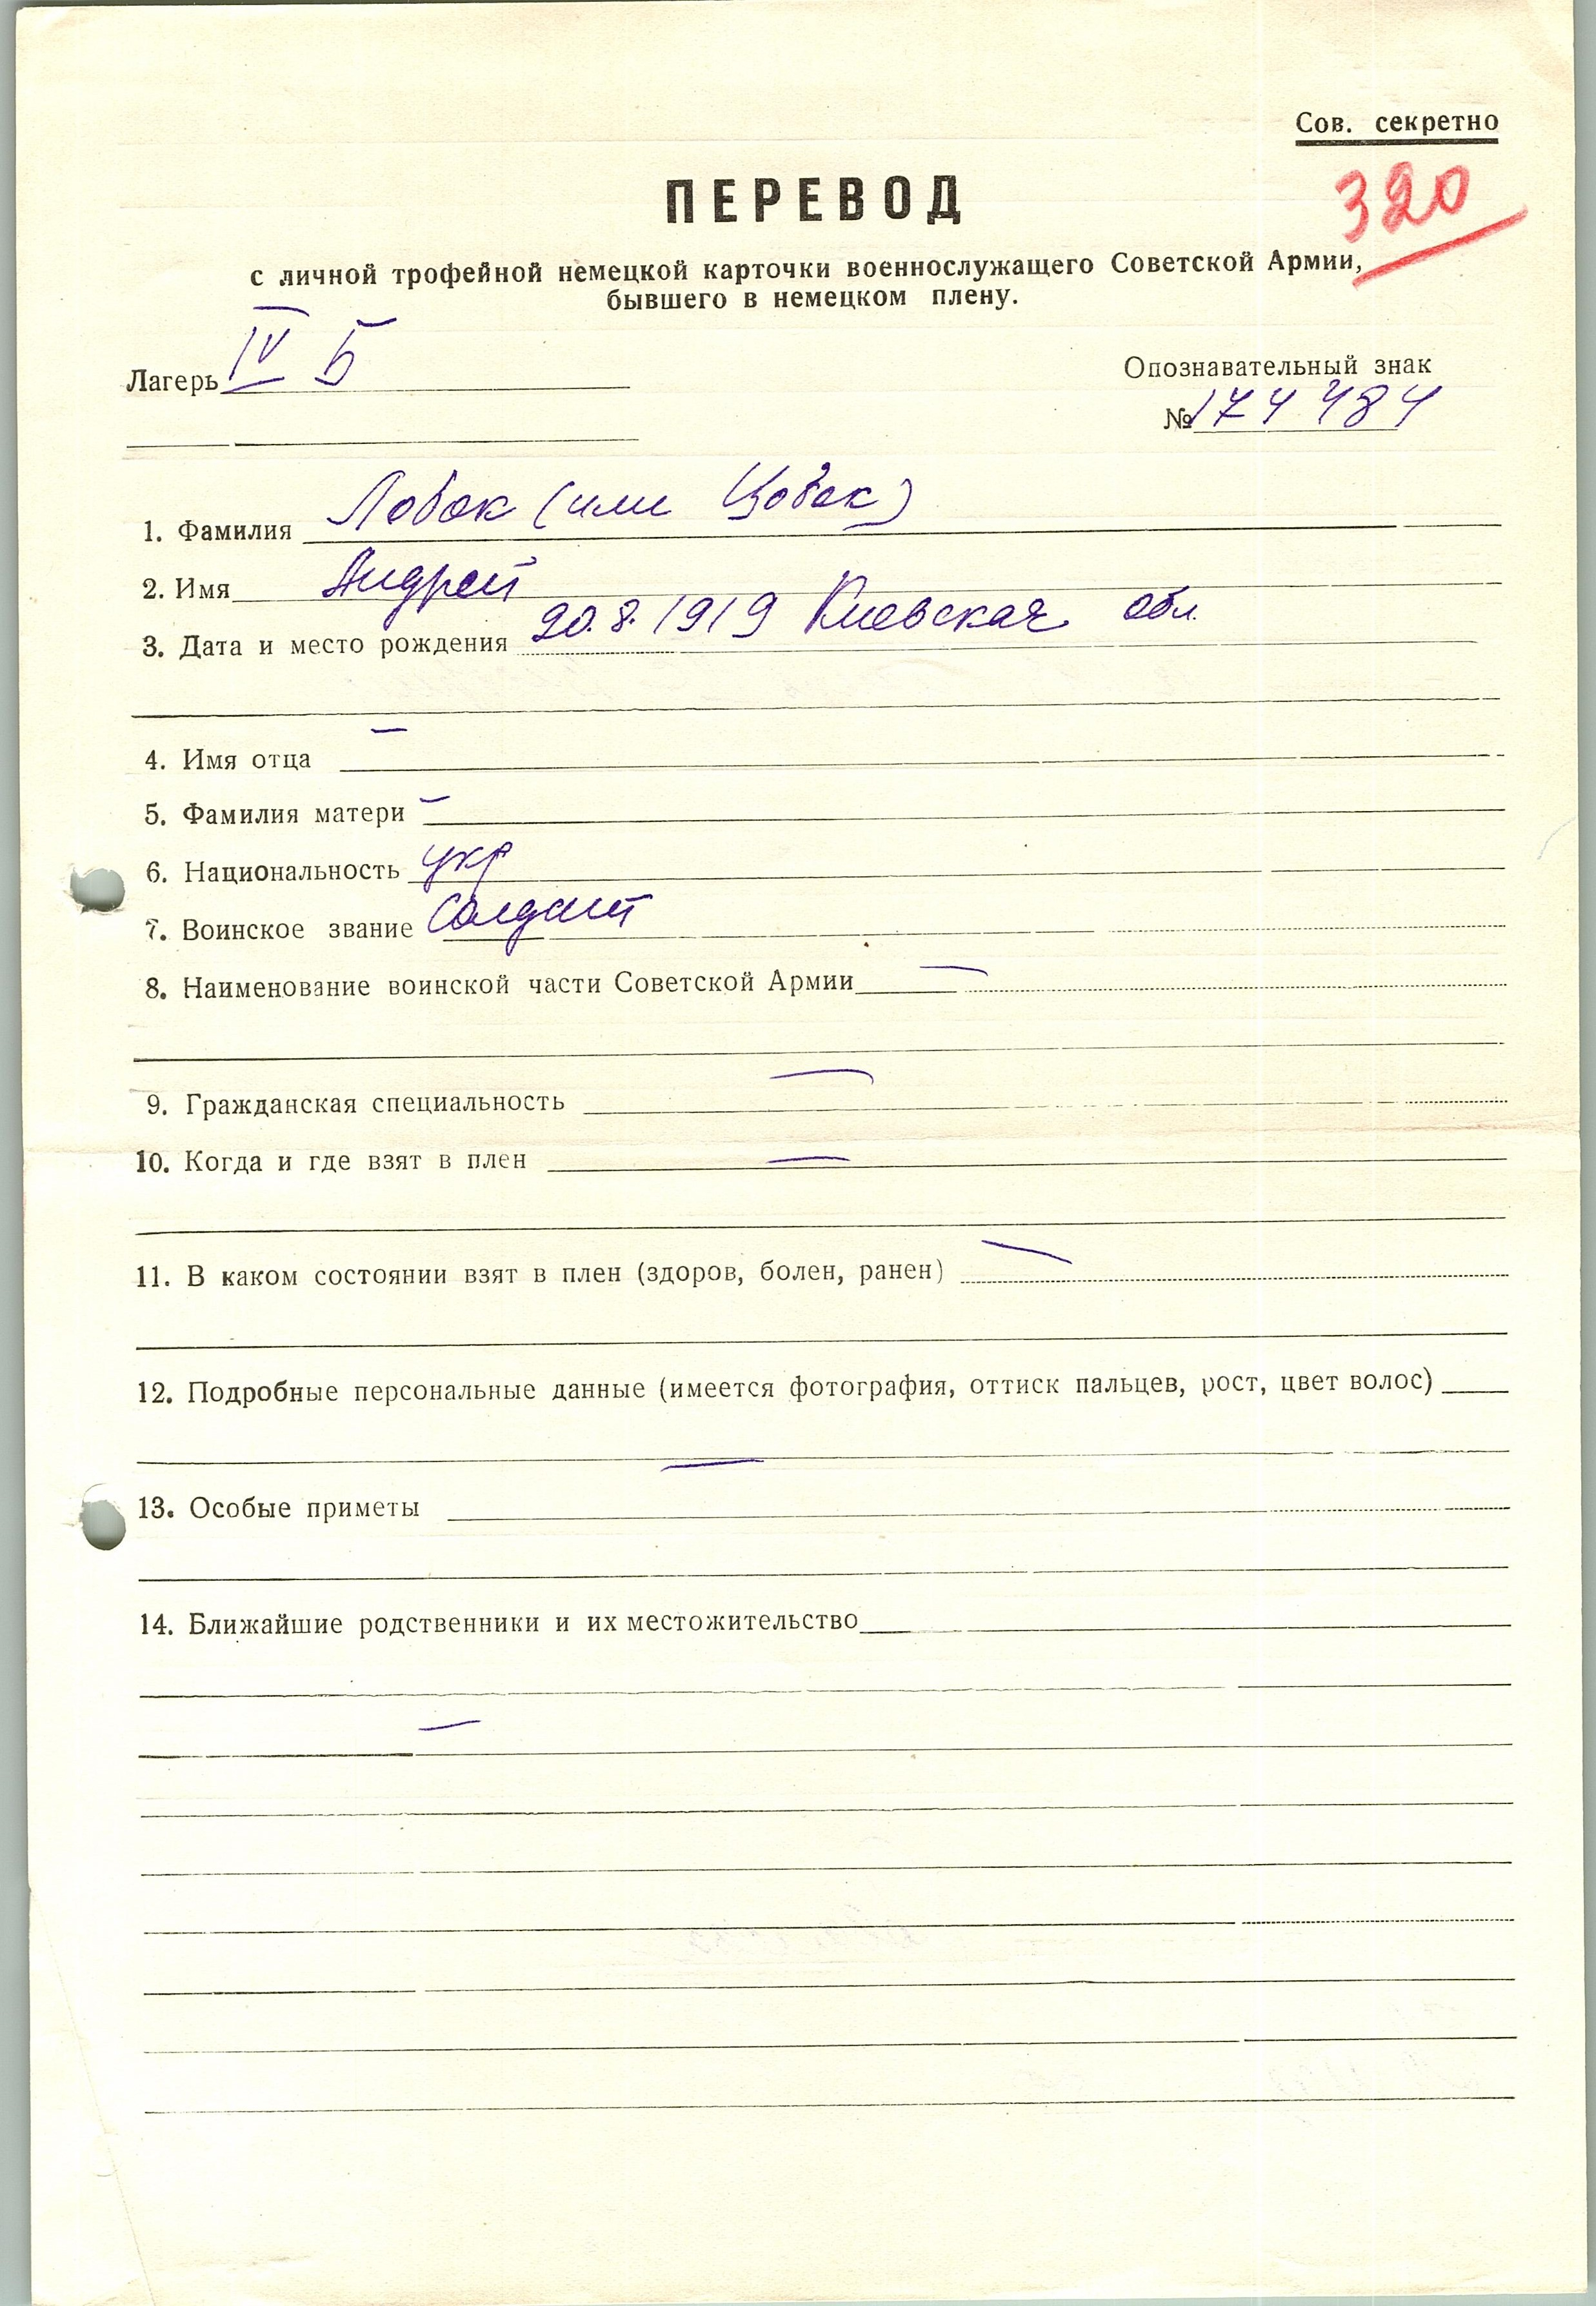 Сов. секретно
320
ПЕРЕВОД
с личной трофейной немецкой карточки военнослужащего Советской Армии,
бывшего в немецком плену.
Лагерь IV Б
Опознавательный знак
№ 174484
1. Фамилия Лобок (или Цобок)
2. Имя Андрей
3. Дата и место рождения 20.8.1919 Киевская обл.
4. Имя отца —
5. Фамилия матери —
6. Национальность укр
7. Воинское звание Солдат
8. Наименование воинской части Советской Армии —
9. Гражданская специальность —
10. Когда и где взят в плен —
11. В каком состоянии взят в плен (здоров, болен, ранен) —
12. Подробные персональные данные (имеется фотография, оттиск пальцев, рост, цвет волос)
—
13. Особые приметы
14. Ближайшие родственники и их местожительство
—